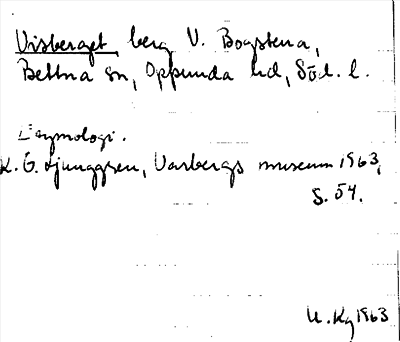 Visberget, berg V. Bogstena,
Bettna sn, Oppunda hd, Söd. l.
Etymologi.
K. G. Ljunggren, Varbergs museum 1963,
S. 54.
U. Kg 1963